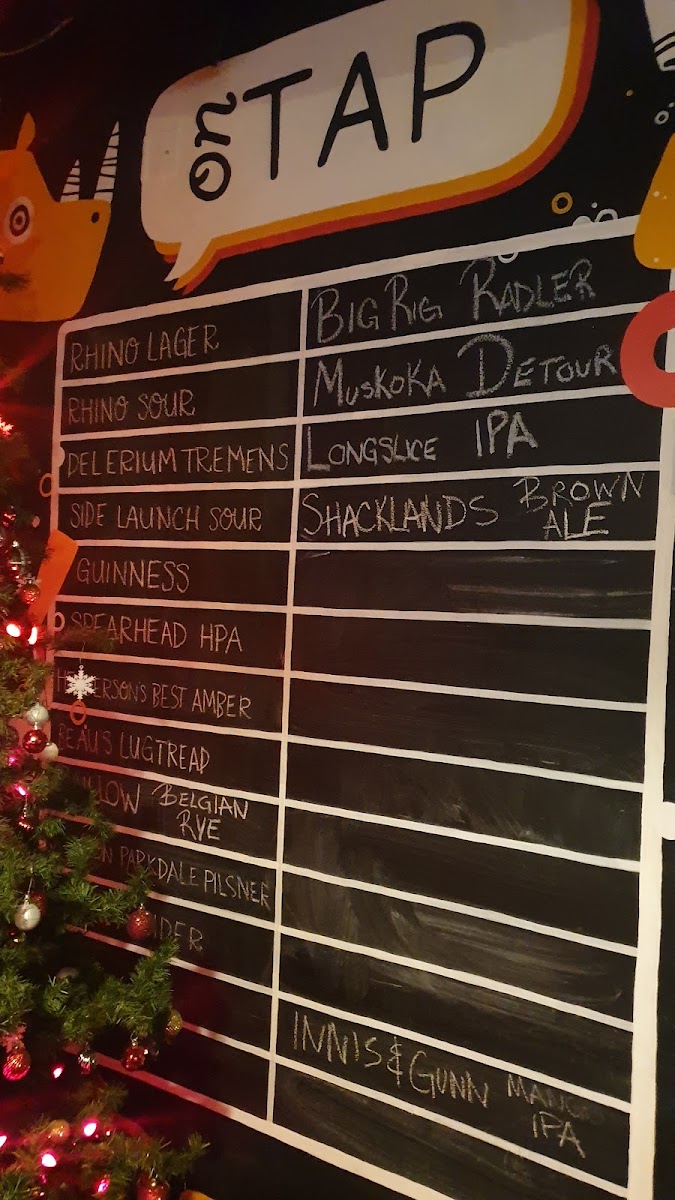 on TAP
RHINO LAGER
RHINO SOUR
DELERIUM TREMENS
SIDE LAUNCH SOUR
GUINNESS
SPEARHEAD HPA
BEST AMBER
BEAU'S LUGTREAD
BELGIAN
RYE
PARKDALE PILSNER
BIG RIG RADLER
MUSKOKA DETOUR
LONGSLICE IPA
SHACKLANDS BROWN
ALE
INNIS & GUNN MANGO
IPA